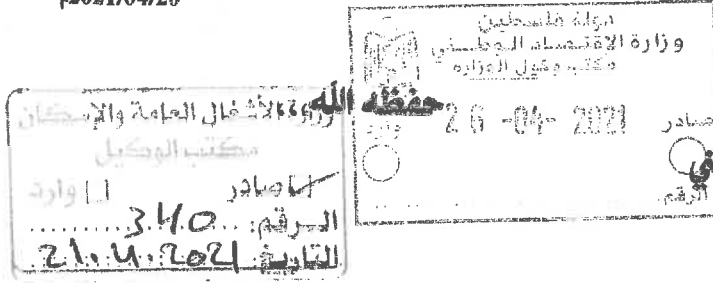 2021/04/26م
دولة فلسطين
وزارة الاقتصاد الوطني
مكتب وكيل الوزارة
صادر 26 -04- 2021 وارد
الرقم:
حفظه الله
وزارة الأشغال العامة والإسكان
مكتب الوكيل
صادر وارد
الرقم: 340
التاريخ: 21.4.2021